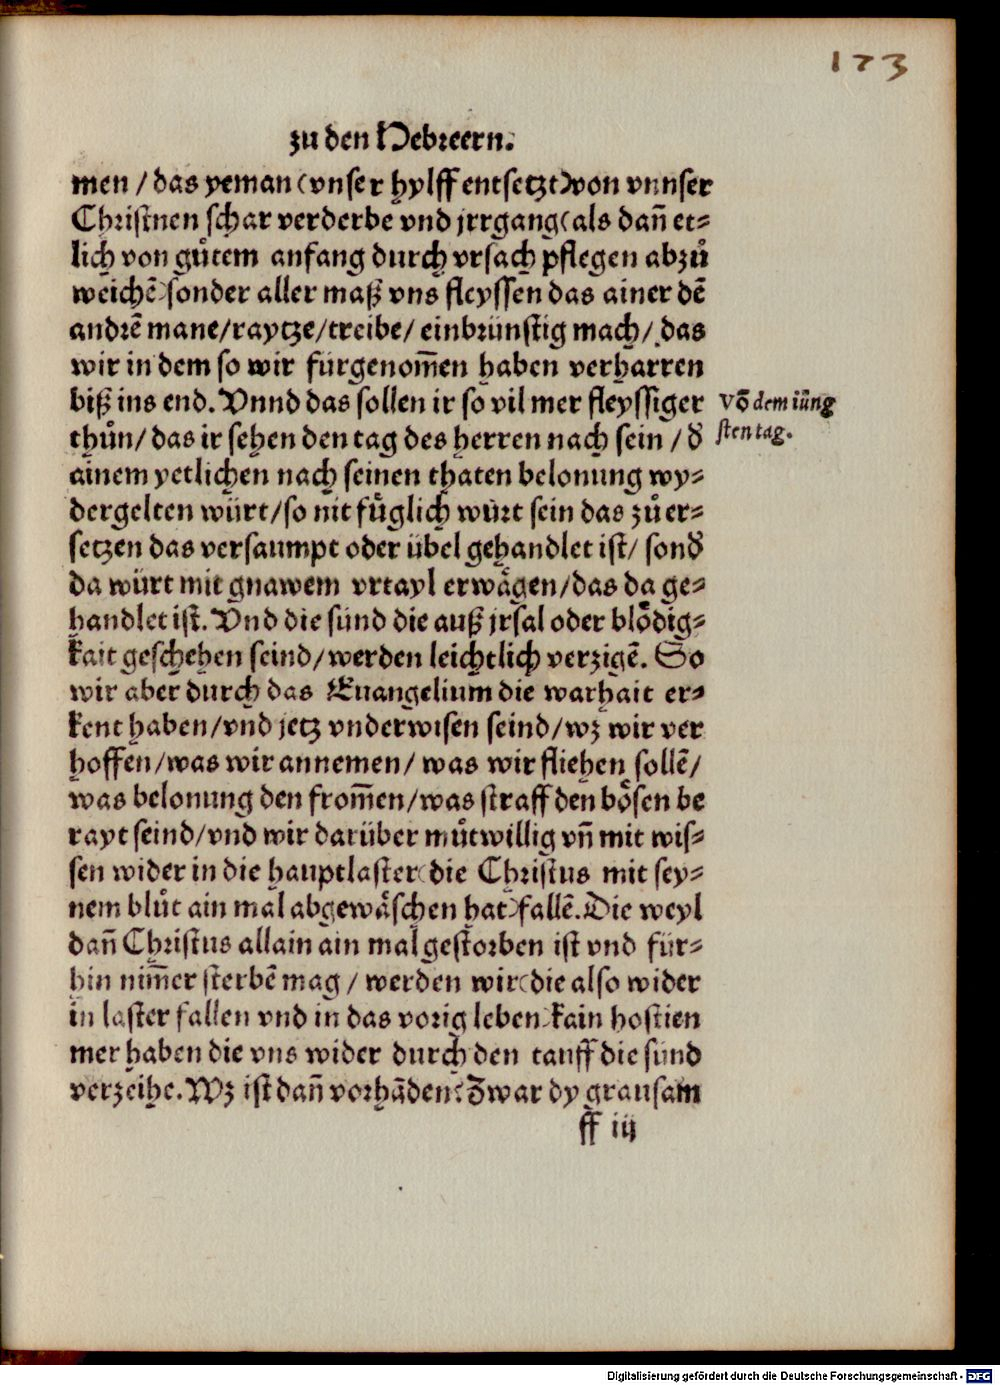 173
zu den Hebreern.
men / das yeman (vnser hylff entsetzt) von vnnser
Christnen schar verderbe vnd jrrgang (als dañ et⸗
lich von gůtem anfang durch vrsach pflegen abzů
weichē) sonder aller maß vns fleyssen das ainer dē
andrē mane/raytze/treibe/ einbrünstig mach/ das
wir in dem so wir fürgenom̃en haben verharren
biß ins end. Vnnd das sollen ir so vil mer fleyssiger
thůn/ das ir sehen den tag des herren nach sein / d̕
ainem yetlichen nach seinen thaten belonung wy⸗
dergelten würt/so nit fůglich würt sein das zů er⸗
setzen das versaumpt oder übel gehandlet ist/ sond̕
da würt mit gnawem vrtayl erwägen/das da ge⸗
handlet ist. Vnd die sünd die auß jrsal oder blödig⸗
kait geschehen seind/werden leichtlich verzigē. So
wir aber durch das Euangelium die warhait er⸗
kent haben/vnd jetz vnderwisen seind/wz wir ver
hoffen/was wir annemen/ was wir fliehen sollē/
was belonung den from̃en/was straff den bösen be
rayt seind/vnd wir darüber můtwillig vñ mit wis⸗
sen wider in die hauptlaster (die Christus mit sey⸗
nem blůt ain mal abgewäschen hat) fallē. Die weyl
dañ Christus allain ain mal gestorben ist vnd für⸗
hin nim̃er sterbē mag / werden wir (die also wider
in laster fallen vnd in das vorig leben) kain hostien
mer haben die vns wider durch den tauff die sünd
verzeihe. Wz ist dañ vorhāden? Zwar dy grausam
ff iij
Vō dem iüng
sten tag.
Digitalisierung gefördert durch die Deutsche Forschungsgemeinschaft - DFG